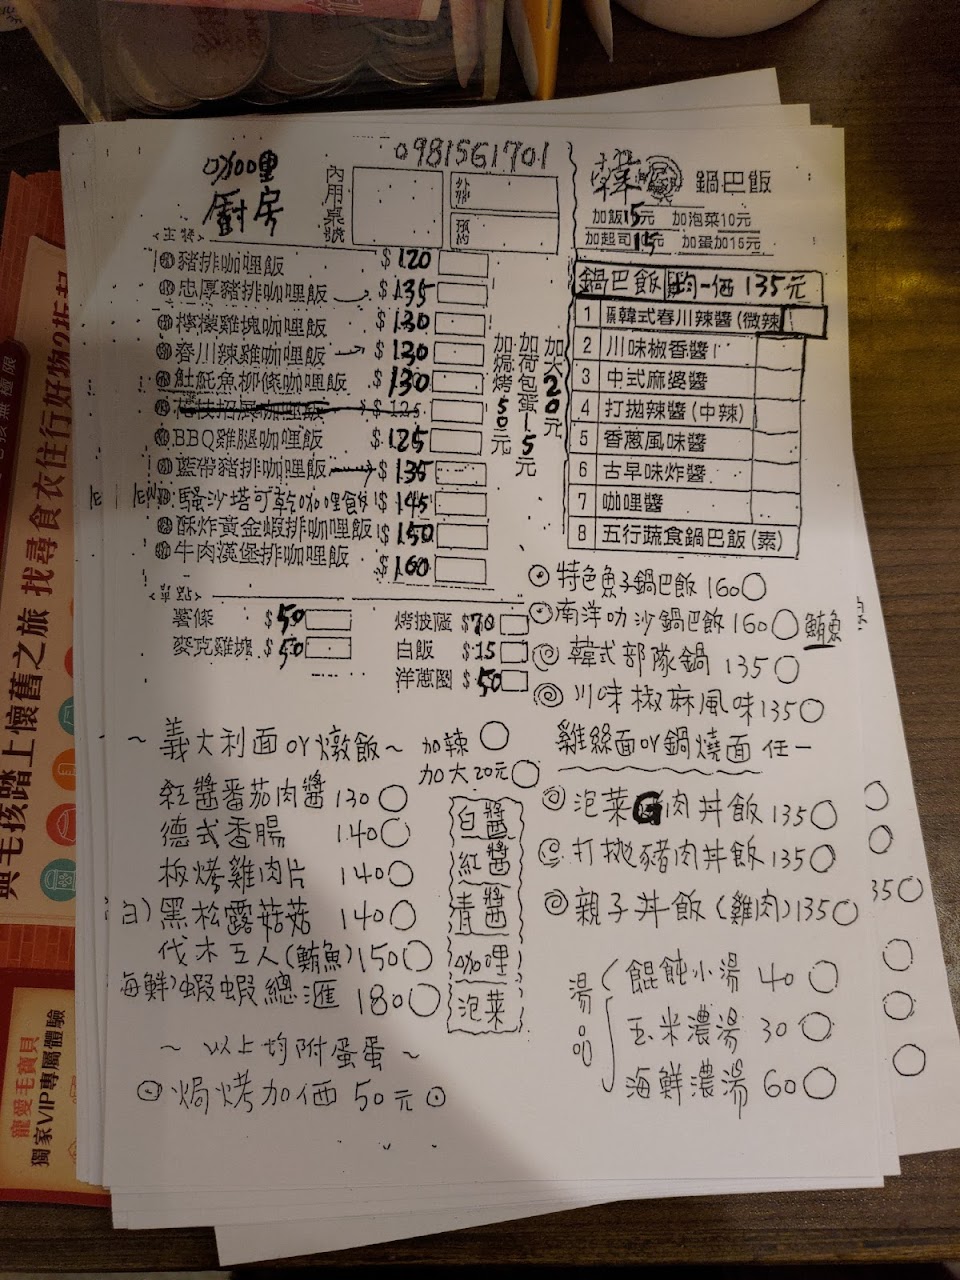 0981561701
咖哩
廚房
內用桌號
外帶
預約
<主餐>
豬排咖哩飯 $120
忠厚豬排咖哩飯 $135
檸檬雞塊咖哩飯 $130
春川辣雞咖哩飯 $130
魠魚柳條咖哩飯 $130
花枝招展咖哩飯 $125
BBQ雞腿咖哩飯 $125
藍帶豬排咖哩飯 $135
騷沙塔可乾咖哩飯 $145
酥炸黃金蝦排咖哩飯 $150
牛肉漢堡排咖哩飯 $160
加焗烤50元
加荷包蛋15元
加大20元
<單點>
薯條 $50
麥克雞塊 $50
烤披薩 $70
白飯 $15
洋蔥圈 $50
韓 鍋巴飯
加飯15元 加泡菜10元
加起司15元 加蛋加15元
鍋巴飯 均一価 135元
1 韓式春川辣醬(微辣
2 川味椒香醬
3 中式麻婆醬
4 打拋辣醬(中辣)
5 香蔥風味醬
6 古早味炸醬
7 咖哩醬
8 五行蔬食鍋巴飯(素)
特色魚子鍋巴飯 160
南洋叻沙鍋巴飯 160 鮪魚
韓式部隊鍋 135
川味椒麻風味 135
雞絲面or鍋燒面 任一
泡菜 肉丼飯 135
打拋豬肉丼飯 135
親子丼飯(雞肉) 135
35
湯品
餛飩小湯 40
玉米濃湯 30
海鮮濃湯 60
~ 義大利面or燉飯 ~ 加辣
加大20元
紅醬番茄肉醬 130
德式香腸 140
板烤雞肉片 140
白) 黑松露菇菇 140
伐木工人(鮪魚) 150
海鮮) 蝦蝦總滙 180
白醬
紅醬
青醬
咖哩
泡菜
~ 以上均附蛋蛋 ~
焗烤加価 50元
與毛孩踏上懷舊之旅 找尋食衣住行好物2折起
寵愛毛寶貝
獨家VIP專屬體驗